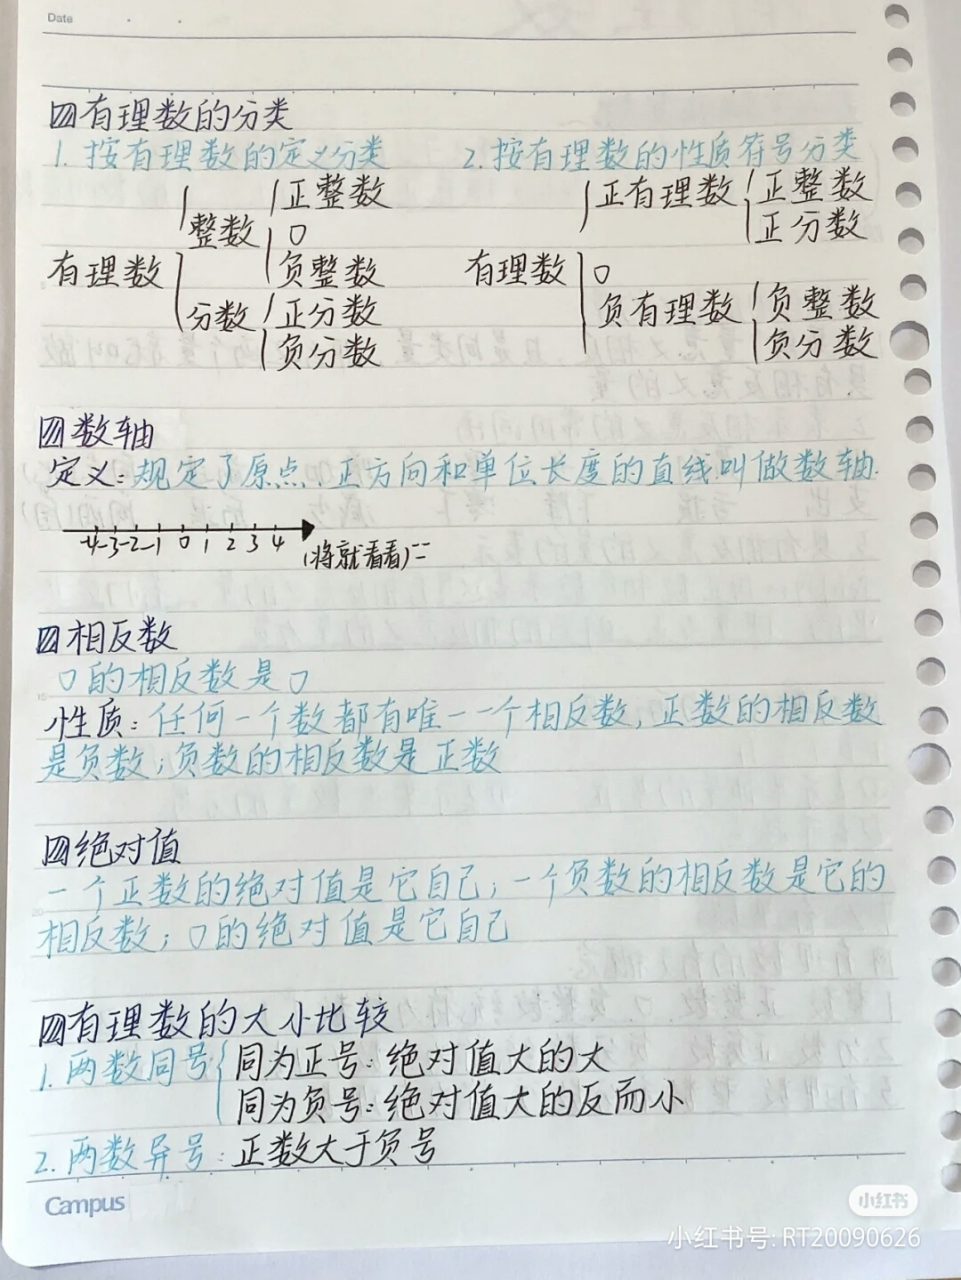 Date
四有理数的分类
1.按有理数的定义分类 2.按有理数的性质符号分类
正整数 正有理数 正整数
整数 0 正分数
有理数 负整数 有理数 0
分数 正分数 负有理数 负整数
负分数 负分数
四数轴
定义:规定了原点、正方向和单位长度的直线叫做数轴.
-4 -3 -2 -1 0 1 2 3 4
(将就看看)
四相反数
0的相反数是0
性质:任何一个数都有唯一一个相反数,正数的相反数
是负数;负数的相反数是正数
四绝对值
一个正数的绝对值是它自己;一个负数的相反数是它的
相反数;0的绝对值是它自己
四有理数的大小比较
1.两数同号 同为正号:绝对值大的大
同为负号:绝对值大的反而小
2.两数异号:正数大于负号
Campus
小红书
小红书号:RT20090626